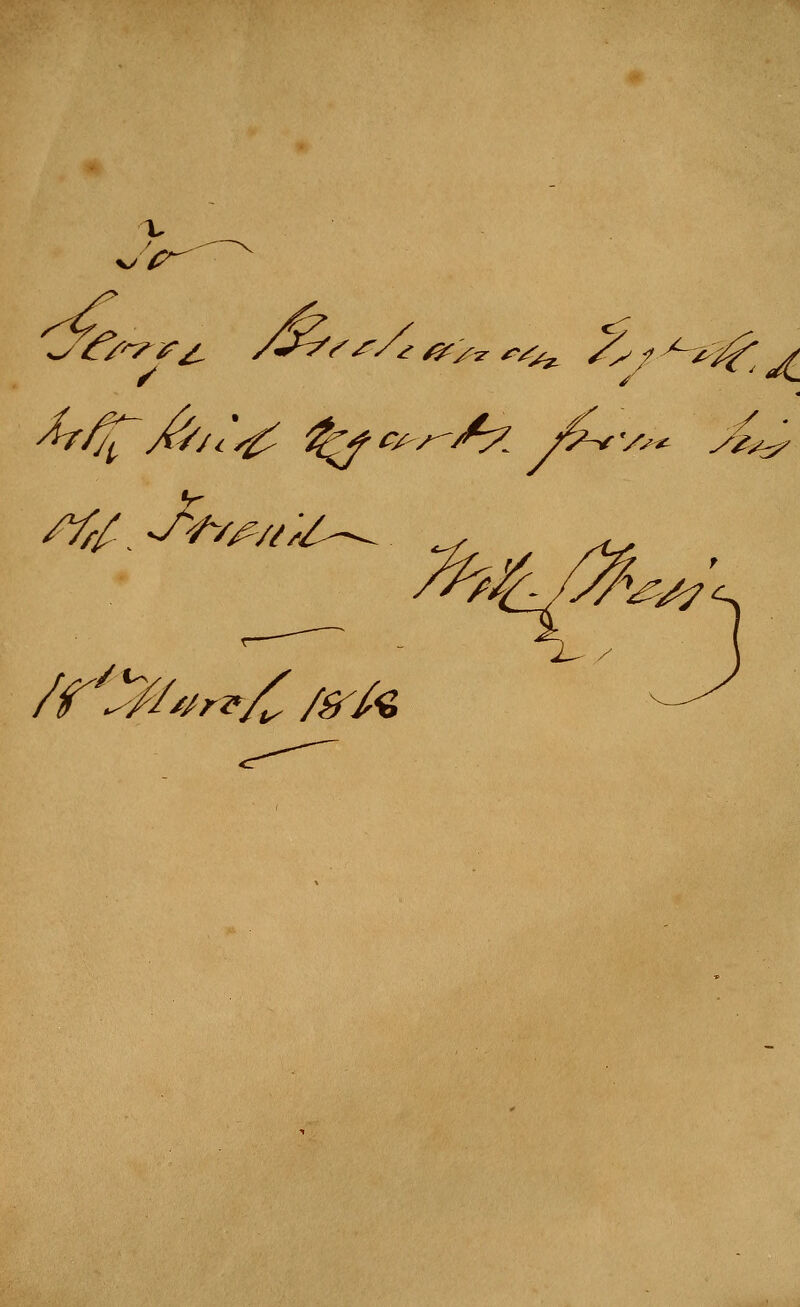 To
George Buchanan Esqre
with kind regards from his
old Friend
Will
18th March 1868